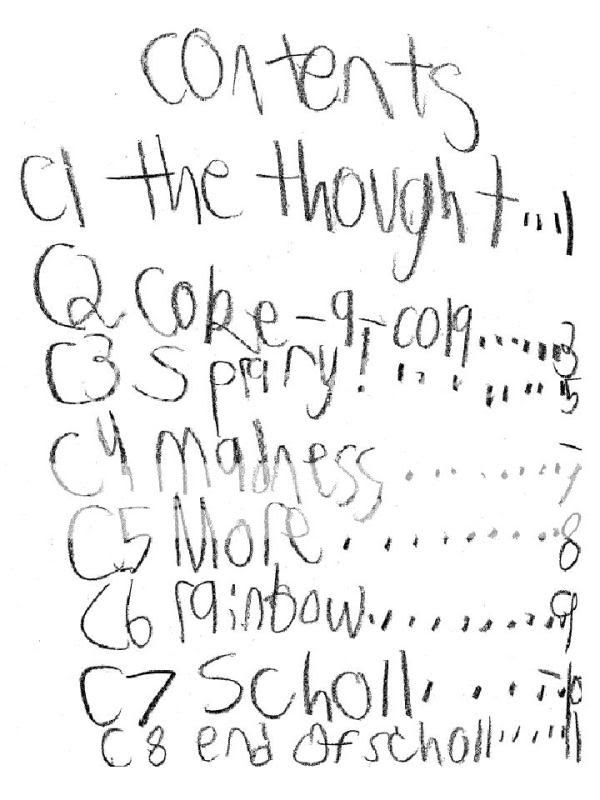 contents
C1 the thought...1
C2 Coke-a-cola......3
C3 Sprary!.......5
C4 Madness........7
C5 More.........8
C6 rainbow.........9
C7 Scholl.....10
C8 end of scholl.....11